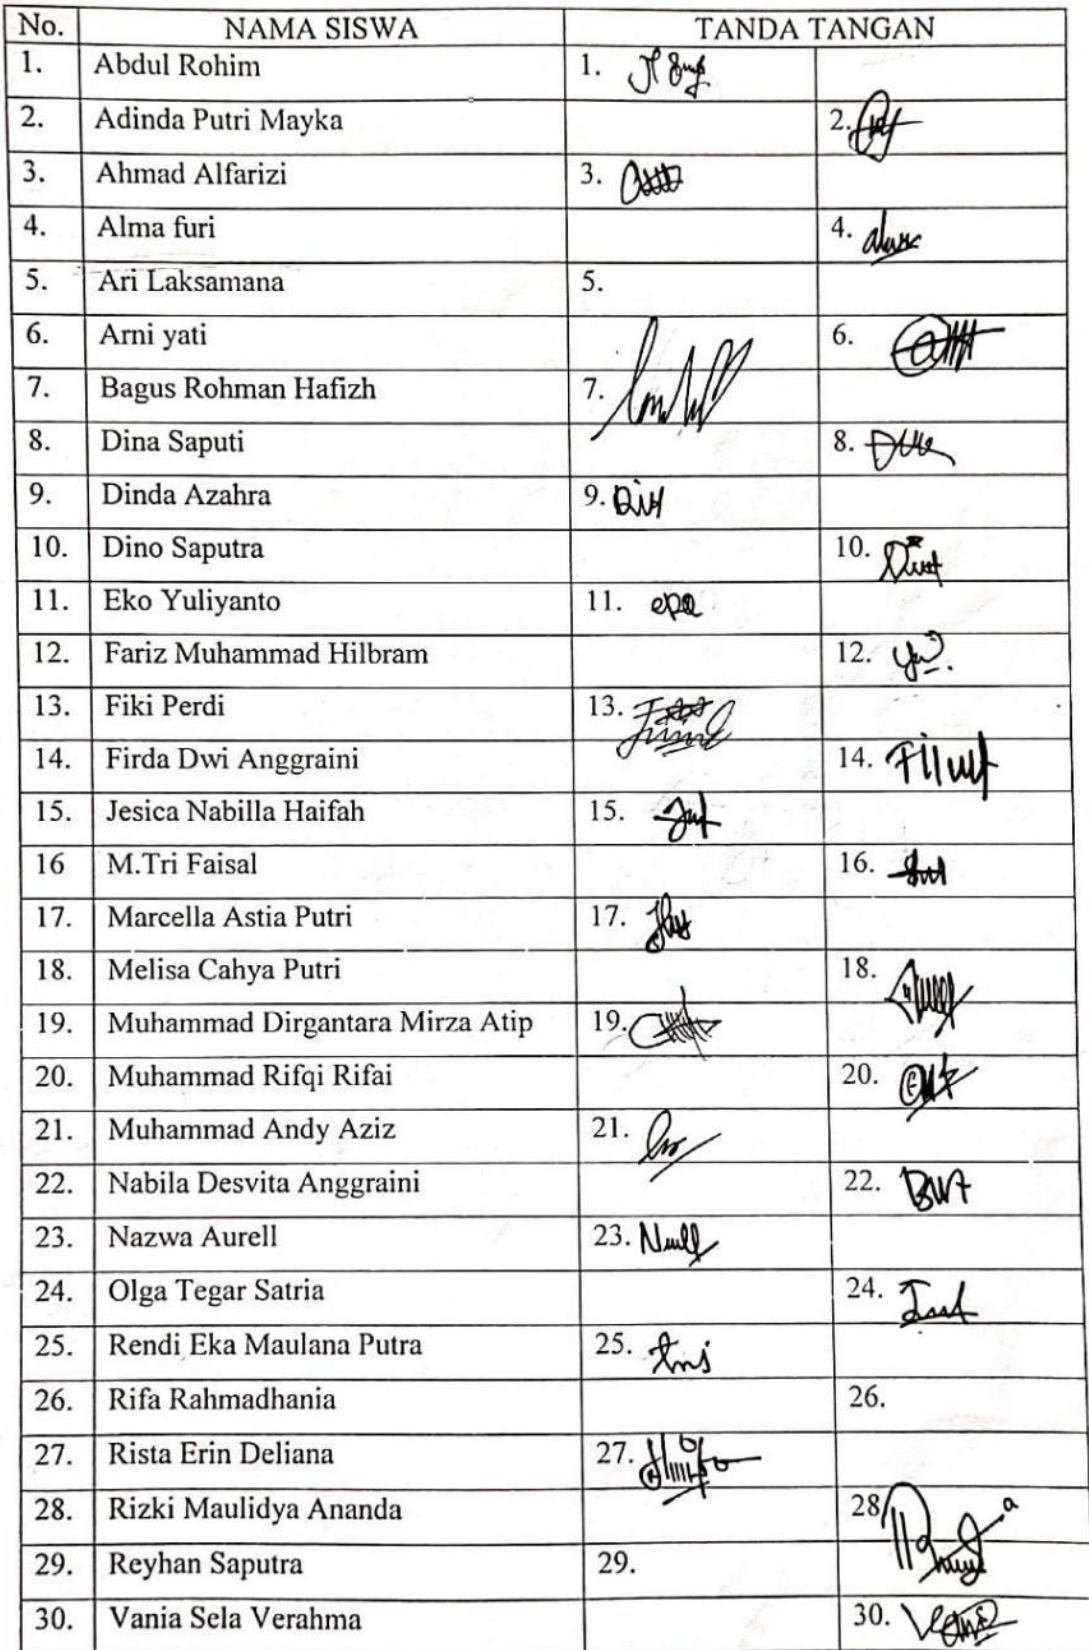 No. NAMA SISWA TANDA TANGAN
1. Abdul Rohim 1.
2. Adinda Putri Mayka 2.
3. Ahmad Alfarizi 3.
4. Alma furi 4.
5. Ari Laksamana 5.
6. Arni yati 6.
7. Bagus Rohman Hafizh 7.
8. Dina Saputi 8.
9. Dinda Azahra 9.
10. Dino Saputra 10.
11. Eko Yuliyanto 11.
12. Fariz Muhammad Hilbram 12.
13. Fiki Perdi 13.
14. Firda Dwi Anggraini 14.
15. Jesica Nabilla Haifah 15.
16 M.Tri Faisal 16.
17. Marcella Astia Putri 17.
18. Melisa Cahya Putri 18.
19. Muhammad Dirgantara Mirza Atip 19.
20. Muhammad Rifqi Rifai 20.
21. Muhammad Andy Aziz 21.
22. Nabila Desvita Anggraini 22.
23. Nazwa Aurell 23.
24. Olga Tegar Satria 24.
25. Rendi Eka Maulana Putra 25.
26. Rifa Rahmadhania 26.
27. Rista Erin Deliana 27.
28. Rizki Maulidya Ananda 28
29. Reyhan Saputra 29.
30. Vania Sela Verahma 30.